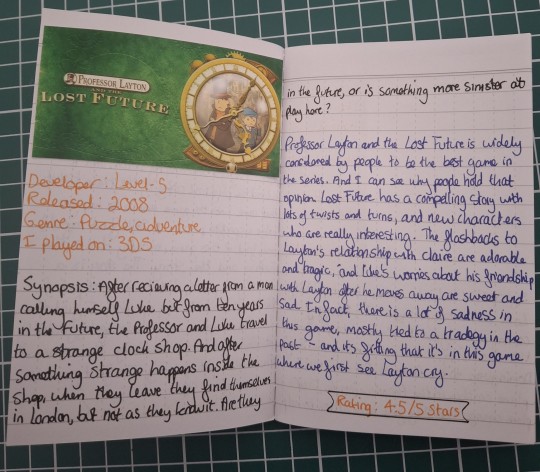 PROFESSOR LAYTON
AND THE
LOST FUTURE
Developer: Level-5
Released: 2008
Genre: Puzzle, adventure
I played on: 3DS
Synopsis: After recieving a letter from a man
calling himself Luke but from ten years
in the future, the Professor and Luke travel
to a strange clock shop. And after
something strange happens inside the
shop, when they leave they find themselves
in London, but not as they know it. Are they
in the future, or is something more sinister at
play here?
Professor Layton and the Lost Future is widely
considered by people to be the best game in
the series. And I can see why people hold that
opinion. Lost Future has a compelling story with
lots of twists and turns, and new characters
who are really interesting. The flashbacks to
Layton's relationship with Claire are adorable
and tragic, and Luke's worries about his friendship
with Layton after he moves away are sweet and
sad. In fact, there is a lot of sadness in
this game, mostly tied to a tradegy in the
past - and its fitting that it's in this game
where we first see Layton cry.
Rating: 4.5/5 stars